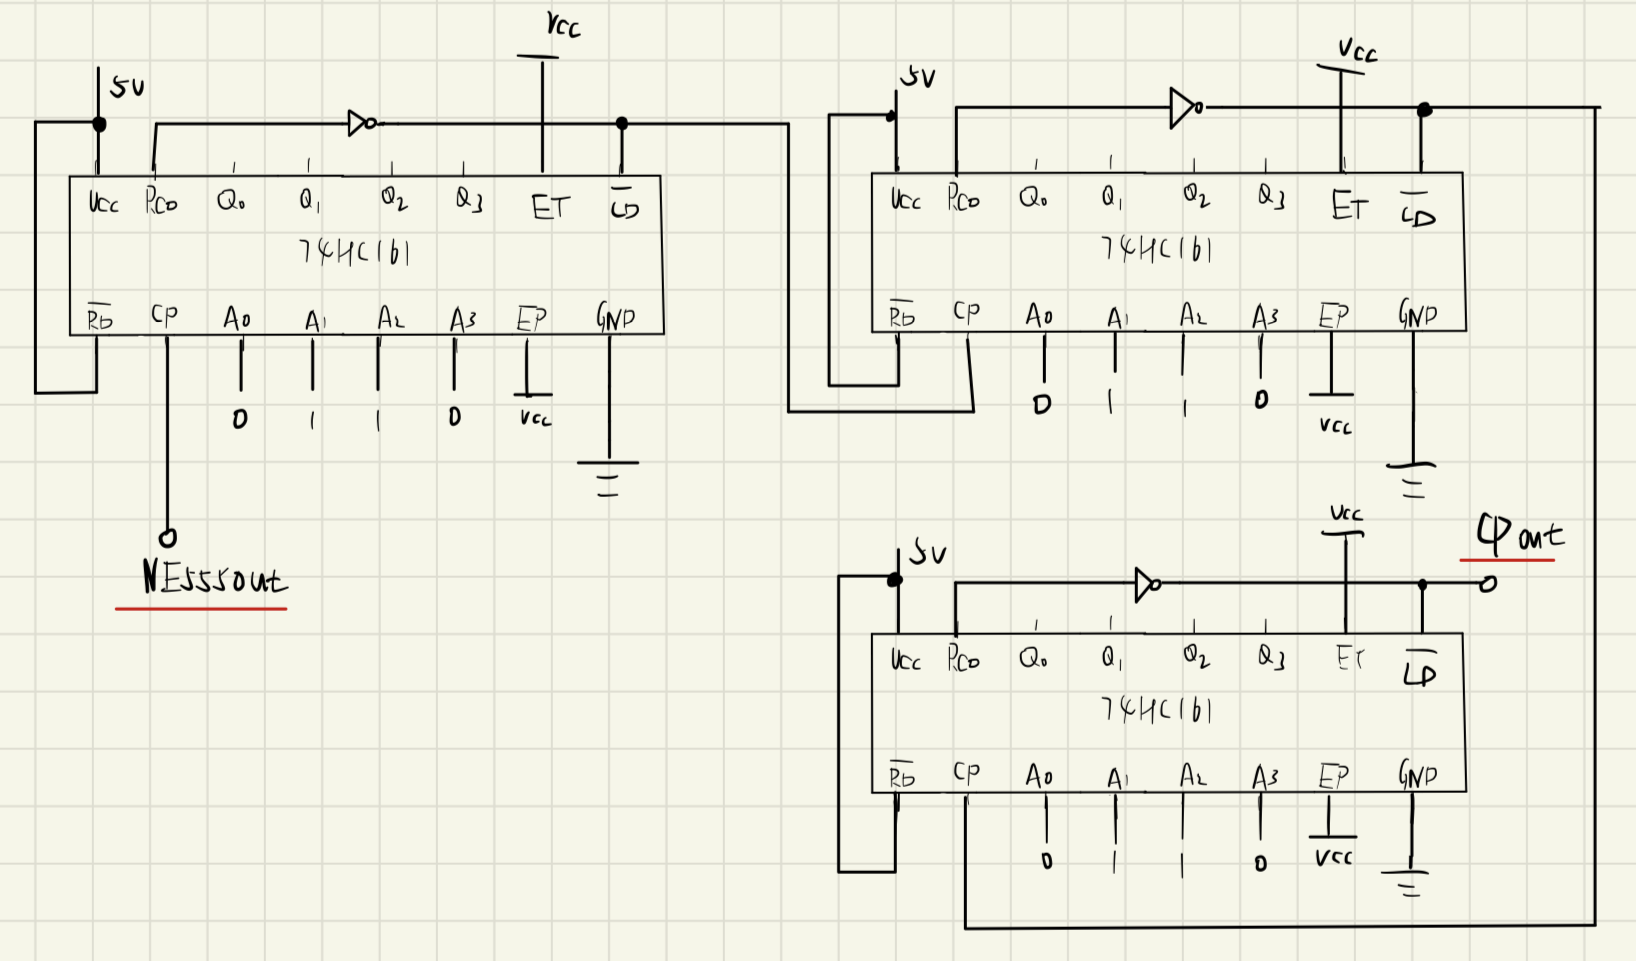 Vcc
5V
Vcc RCO Q₀ Q₁ Q₂ Q₃ ET L̅D̅
74HC161
R̅D̅ CP A₀ A₁ A₂ A₃ EP GND
0 1 1 0 Vcc
NE555out
Vcc
5V
Vcc RCO Q₀ Q₁ Q₂ Q₃ ET L̅D̅
74HC161
R̅D̅ CP A₀ A₁ A₂ A₃ EP GND
0 1 1 0 Vcc
Vcc
CPout
5V
Vcc RCO Q₀ Q₁ Q₂ Q₃ ET L̅D̅
74HC161
R̅D̅ CP A₀ A₁ A₂ A₃ EP GND
0 1 1 0 Vcc